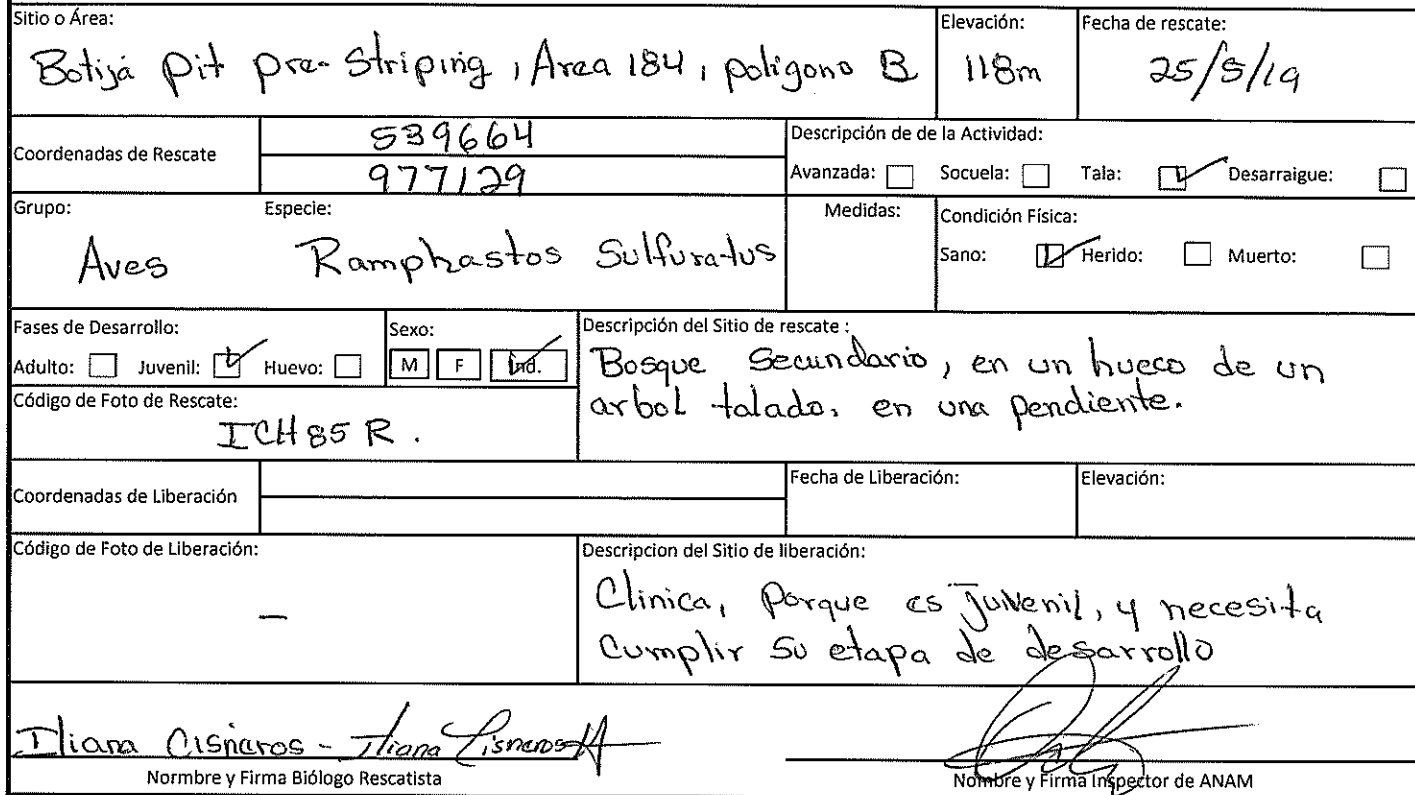 Sitio o Área:
Elevación:
Fecha de rescate:
Botija pit pre-Striping, Area 184, poligono B
118m
25/5/19
Coordenadas de Rescate
539664
977129
Descripción de de la Actividad:
Avanzada: Socuela: Tala: Desarraigue:
Grupo:
Especie:
Medidas:
Condición Física:
Aves
Ramphastos Sulfuratus
Sano: Herido: Muerto:
Fases de Desarrollo:
Adulto: Juvenil: Huevo:
Sexo:
M F Ind.
Descripción del Sitio de rescate :
Bosque Secundario, en un hueco de un
arbol talado. en una pendiente.
Código de Foto de Rescate:
ICH 85 R.
Coordenadas de Liberación
Fecha de Liberación:
Elevación:
Código de Foto de Liberación:
—
Descripcion del Sitio de liberación:
Clinica, Porque es Juvenil, y necesita
Cumplir su etapa de desarrollo
Iliana Cisneros - Iliana Cisneros
Normbre y Firma Biólogo Rescatista
Nombre y Firma Inspector de ANAM